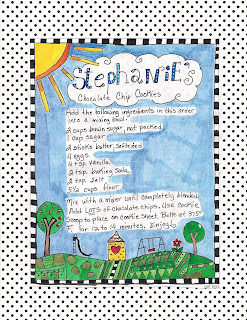 Stephanie's
Chocolate Chip Cookies
Add the following ingredients in this order
into a mixing bowl.
2 cups brown sugar, not packed
1 cup sugar
4 sticks butter, softened
4 eggs
4 tsp. vanilla
2 tsp. baking soda
2 tsp. salt
5½ cups flour
Mix with a mixer until completely blended.
Add LOTS of chocolate chips. Use cookie
scoop to place on cookie sheet. Bake at 375°
F. for 12 to 14 minutes. Enjoy!